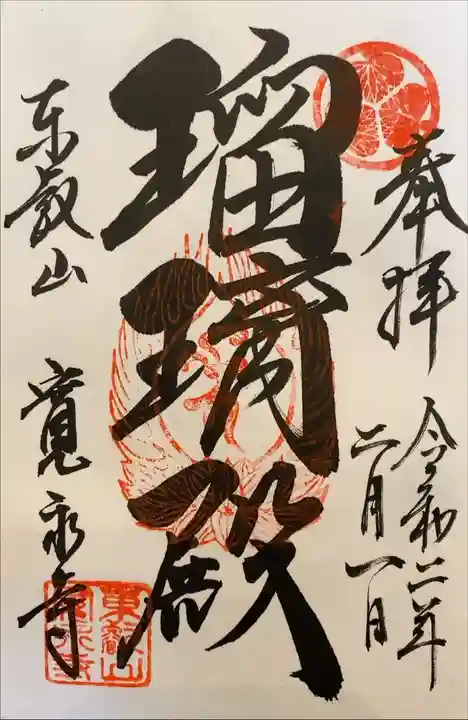 奉拝
令和二年
二月一日
瑠璃殿
東叡山 寛永寺
東叡山
寛永寺